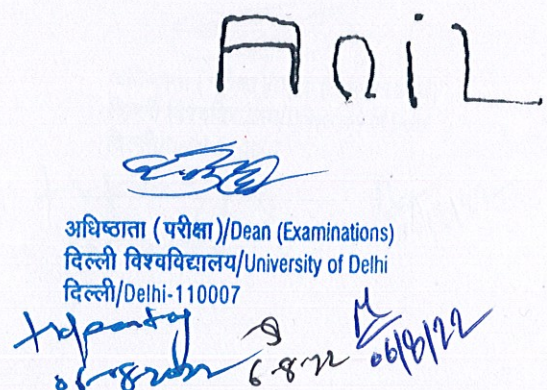 Anil
अधिष्ठाता (परीक्षा)/Dean (Examinations)
दिल्ली विश्वविद्यालय/University of Delhi
दिल्ली/Delhi-110007
6-8-22 06/8/22